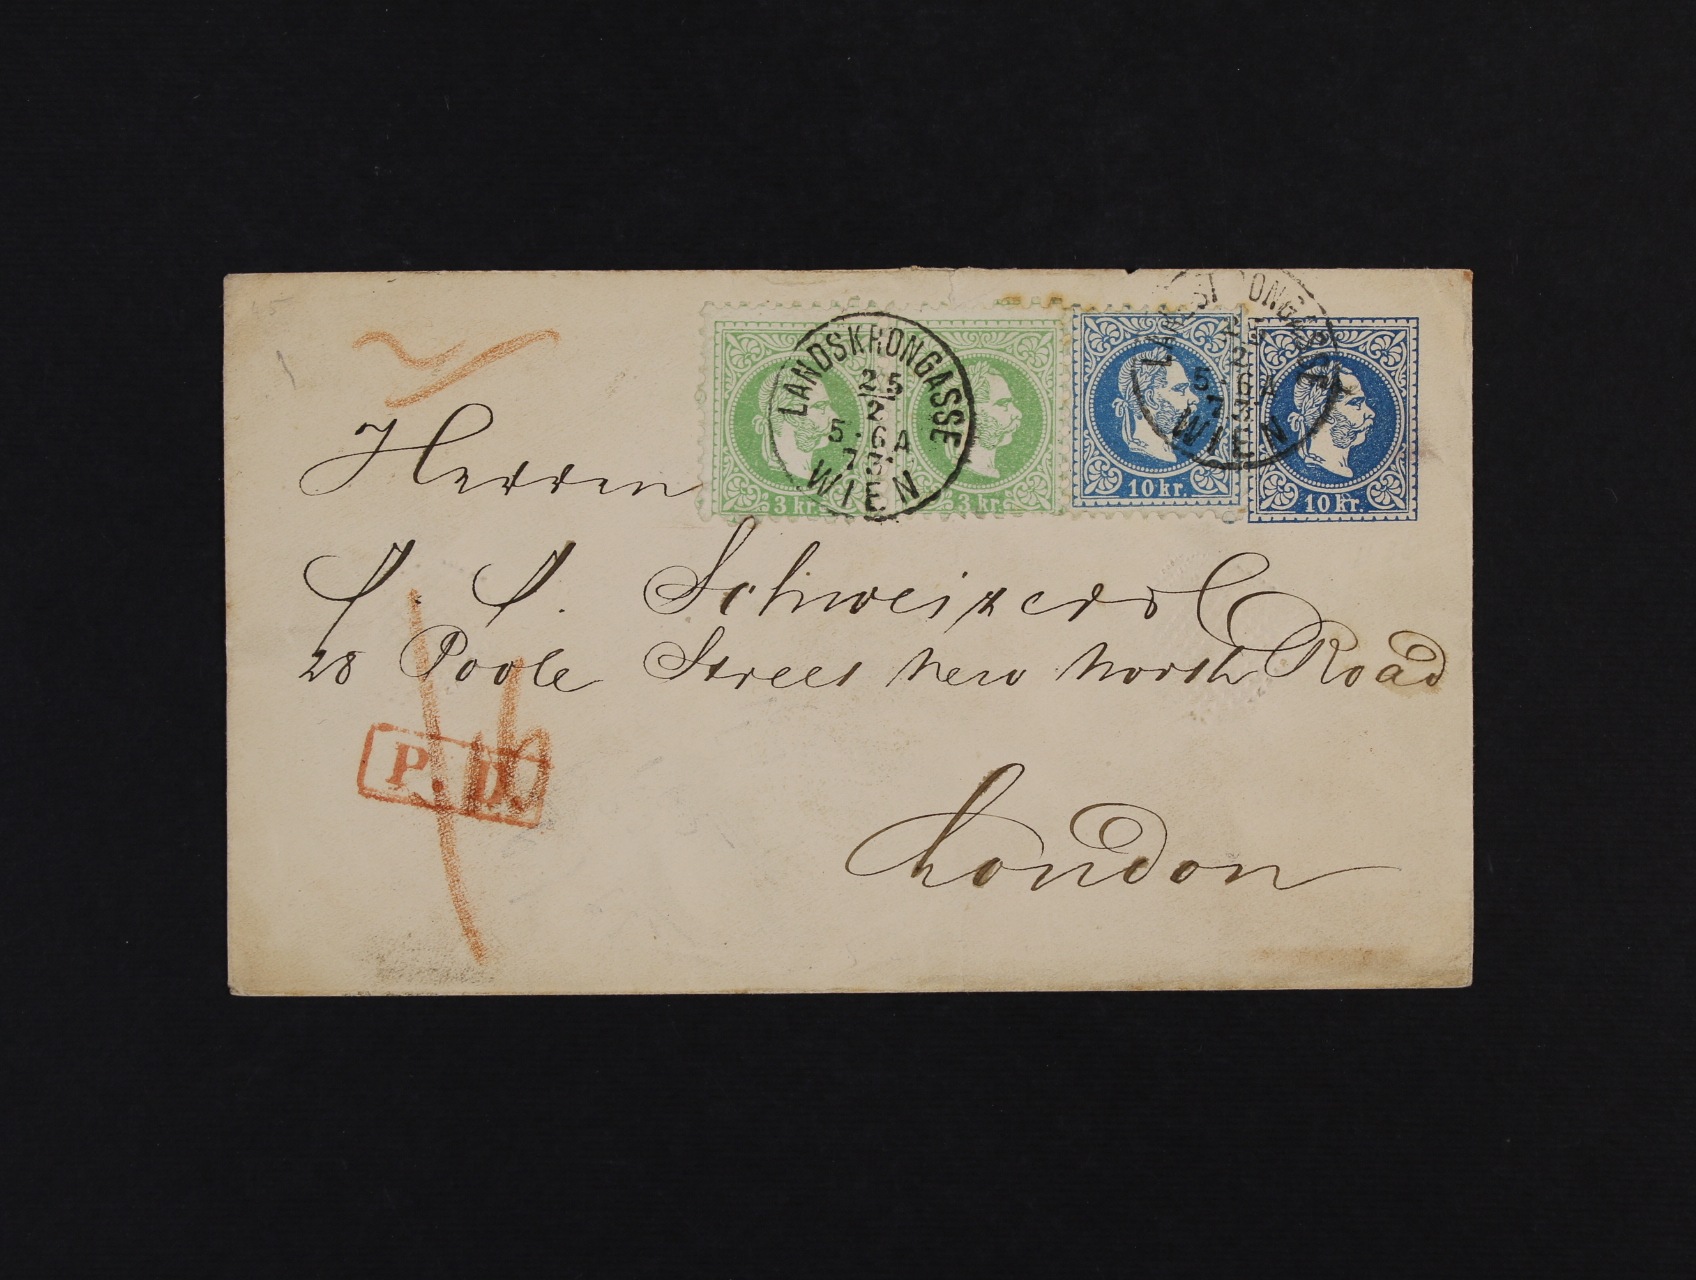 LANDSKRONGASSE
25
2
5-6A
73
WIEN
3 kr.
3 kr.
25
2
5-6A
WIEN
10 kr.
10 kr.
Herrn
J J. Schweizer
28 Poole Street New North Road
P.D.
London